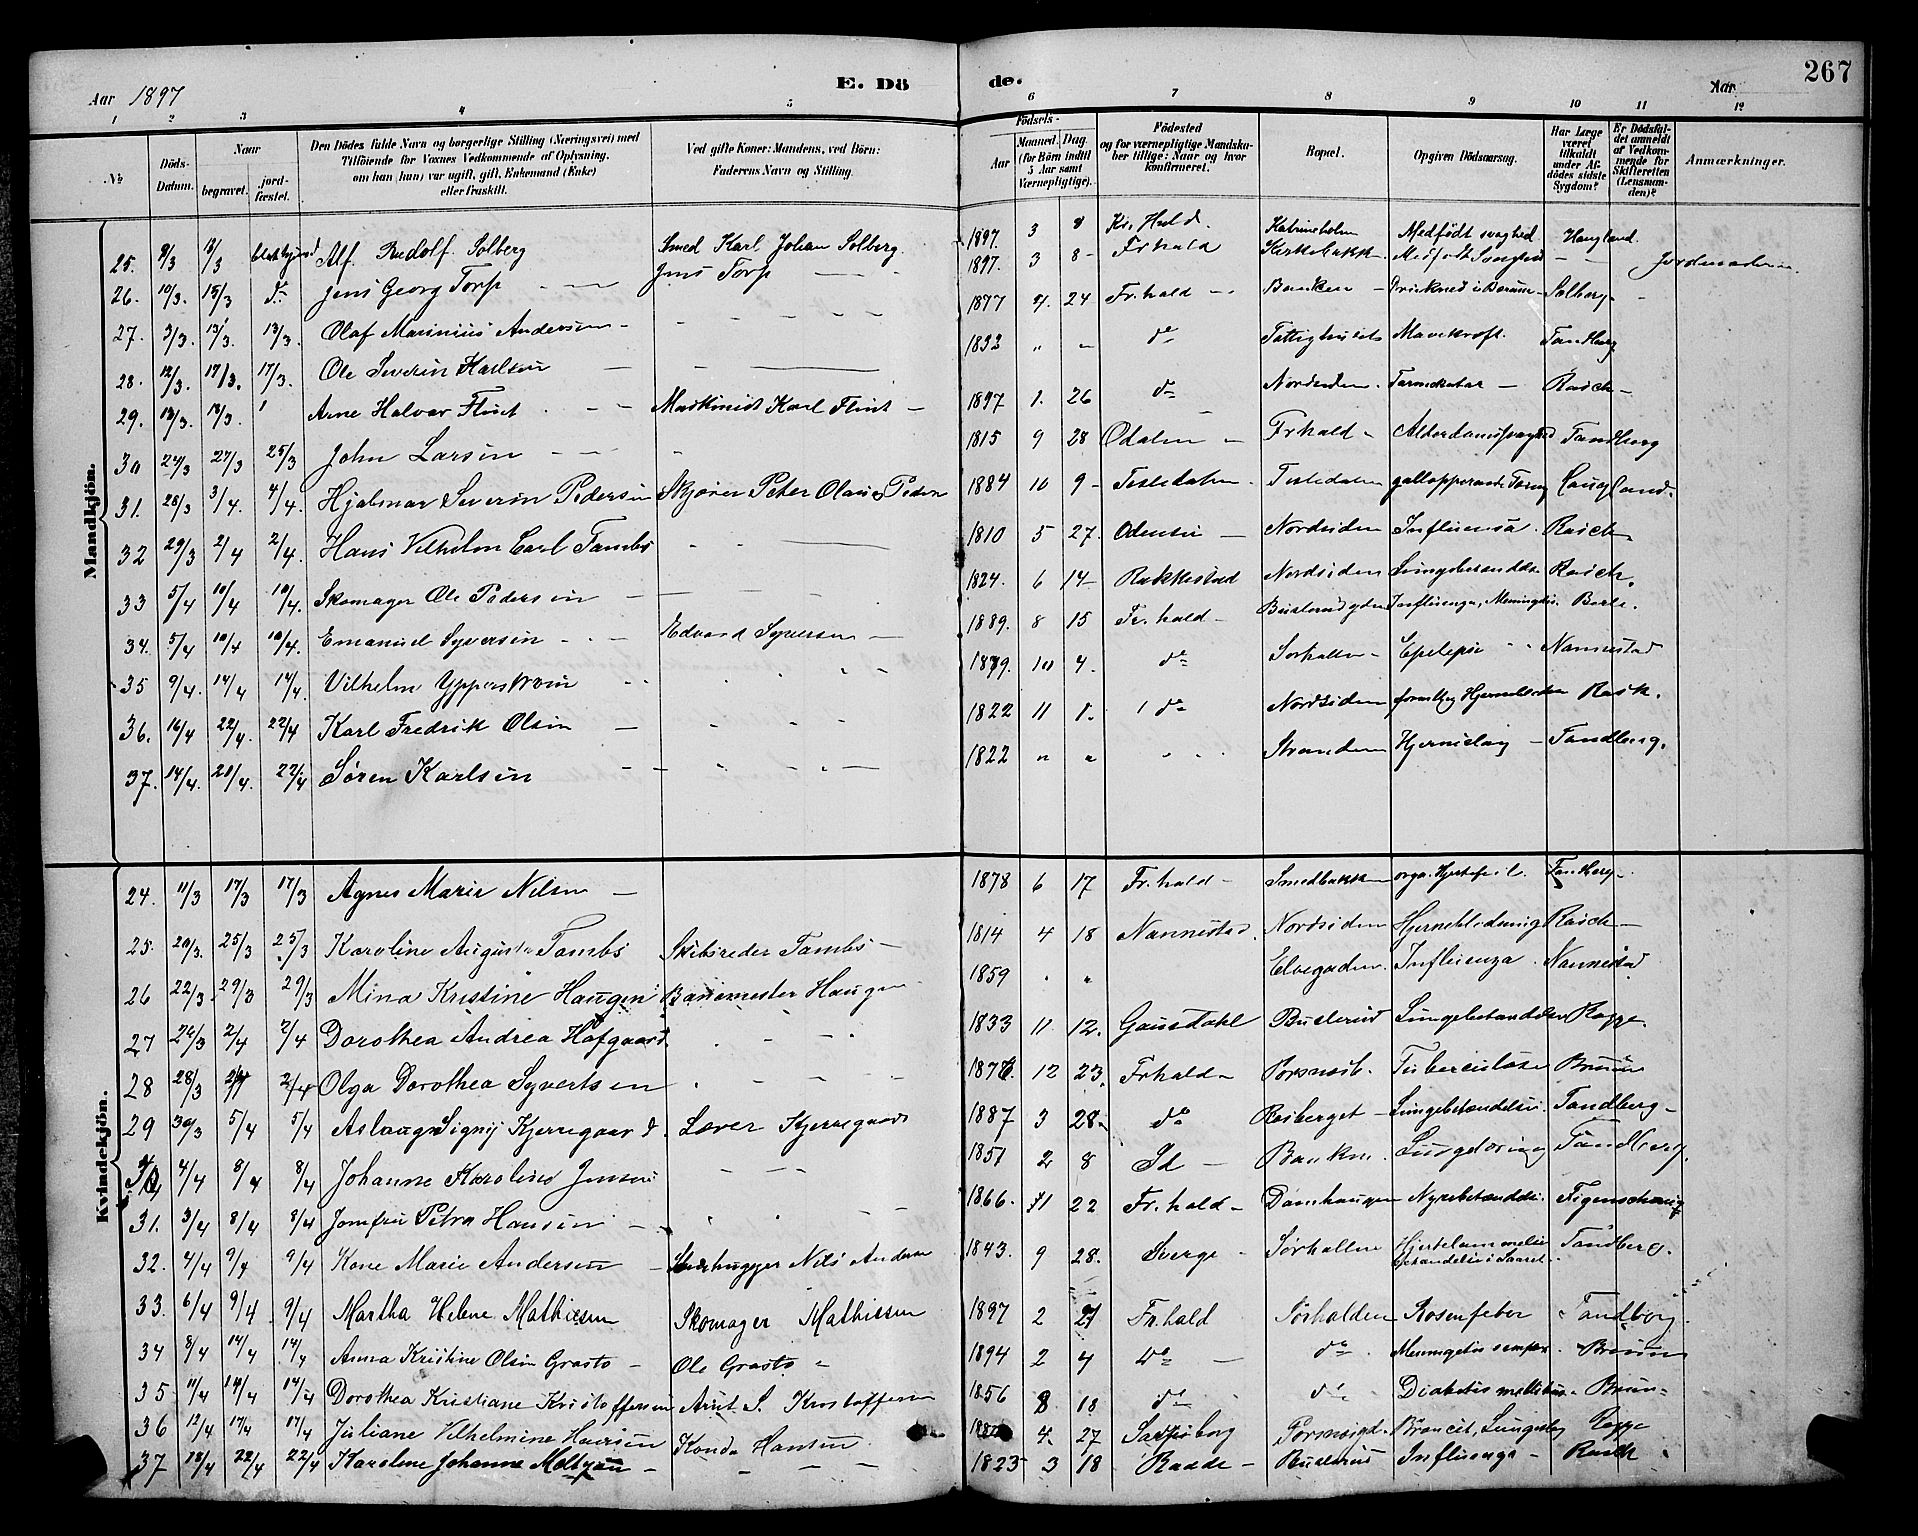 Aar 1897 E. Dö
1 2 3 4 5
№ Döds-Datum. Naar begravet. jordfæstet. Den Dödes fulde Navn og borgerlige Stilling (Næringsvei) med Tilföiende for Voxnes Vedkommende af Oplysning, om han (hun) var ugift, gift, Enkemand (Enke) eller fraskilt. Ved gifte Koner: Mandens, ved Börn: Faderens Navn og Stilling.
Mandkjön.
25. 8/3 13/3 Alf Rudolf Solberg Smed Karl Johan Solberg
26. 10/3 15/3 do Jens Georg Torp Jens Torp
27. 3/3. 13/3. 13/3. Olaf Marinius Andersen
28. 12/3. 17/3. 17/3. Ole Severin Karlsen
29. 13/3. 18/3. Arne Halvor Flint Karl Flint
30 24/3 27/3 25/3 John Larsen
31. 28/3 3/4. 4/4. Hjalmar Severin Pedersen Peter Olaus Peder
32 29/3 2/4 2/4. Hans Vilhelm Carl Tambs
33 5/4 10/4 10/4. Skomager Ole Pedersen
34. 5/4 10/4 10/4. Emanuel Syversen Edvard Syversen
35 9/4. 14/4 14/4. Vilhelm Ypperstrøm
36. 16/4 22/4. 22/4 Karl Fredrik Olsen
37. 14/4. 20/4. 22/4 Søren Karlsen
Kvindekjön.
24. 11/3 17/3 17/3 Agnes Marie Nilsen
25. 20/3. 25/3 25/3 Karoline Augusta Tambs Skibsreder Tambs
26 22/3 29/3 29/3 Mina Kristine Haugen Banemester Haugen
27 26/3 2/4 2/4 Dorothea Andrea Hofgaard
28 28/3 2/4 2/4 Olga Dorothea Syvertsen
29 30/3 5/4 5/4 Aslaug Signy Kjerregaard Lærer Kjerregaard
30 4/4 8/4 8/4 Johanne Karoline Jensen
31. 3/4 8/4 8/4 Jomfru Petra Hansen
32. 4/4 9/4 9/4 Kone Marie Andersen Stenhugger Nils Andersen
33. 6/4 9/4 9/4 Martha Helene Mathisen Skomager Mathissen
34 8/4 14/4 14/4. Anna Kristine Olsen Grasto Ole Grasto
35 11/4 14/4 14/4 Dorothea Kristiane Kristoffersen Arnt S. Kristoffersen
36 12/4 17/4 17/4 Juliane Vilhelmine Hansen Hansen
37 18/4 22/4 22/4 Karoline Johanne
de. Aar 267
6 7 8 9 10 11 12
Födsels- Aar Maaned. Dag. (for Börn indtil 5 Aar samt Værnepligtige). Födested og for værnepligtige Mandskaber tillige: Naar og hvor konfirmeret. Bopæl. Opgiven Dödsaarsag. Har Læge været tilkaldt under Afdödes sidste Sygdom? Er Dödsfaldet anmeldt af Vedkommende for Skifteretten (Lensmanden)? Anmærkninger.
1897. 3 8 Medfødt svaghed Haugland
1897. 3 8 Frhald Jordmoderen
1877 24 Fr.hald Banken Solberg
1832 do Fattighuset Mavekræft Tandberg
1897 1. 26 do Nordsiden Tarmekatar Rasch
1815 9 28 Odalen Frhald Alderdomssvaghed Tandberg
1884 10 9 Tistedalen Tistedalen Haugland
1810 5 27. Odense Nordsiden Influensa Rasch
1824. 6 14 Rakkestad Nordsiden Lungebetændelse Rasch.
1889. 8 15 Fr.hald Influenza, Meningitis
1879. 10 4. do Sørhalden Epelepsi Nannestad
1822 11 1. do Nordsiden Rask.
1822 Stranden Hjerneslag Tandberg.
1878 6 17 Fr.hald Smedbakken orga. Hjertefeil. Tandberg
1814 4 18 Nannestad. Nordsiden Hjerneblødning Rasch
1859 Elvegaden. Influenza Nannestad
1833 11. 12. Gausdahl Buslerud Lungebetændelse Rogge.
1876. 12 23. Frhald Tuberculose Bruun
1887 3 28. do Rosberget Lungebetændelse Tandberg
1851 2 8 Id Banken Tandberg.
1866. 11 22 Fr.hald Damhaugen Nyrebetændelse Figenschaug
1843. 9 28. Sverge Sørhalden Tandberg.
1897 2 21 Fr.hald Sørhalden Rosenfeber Tandberg.
1894 2 4 do do Bruun
1856 8 18 do do Diabetis mellitus Bruun
4. 27 Sarpsborg Rogge
1823 3 18 Raade Buslerud Influenza Rasch